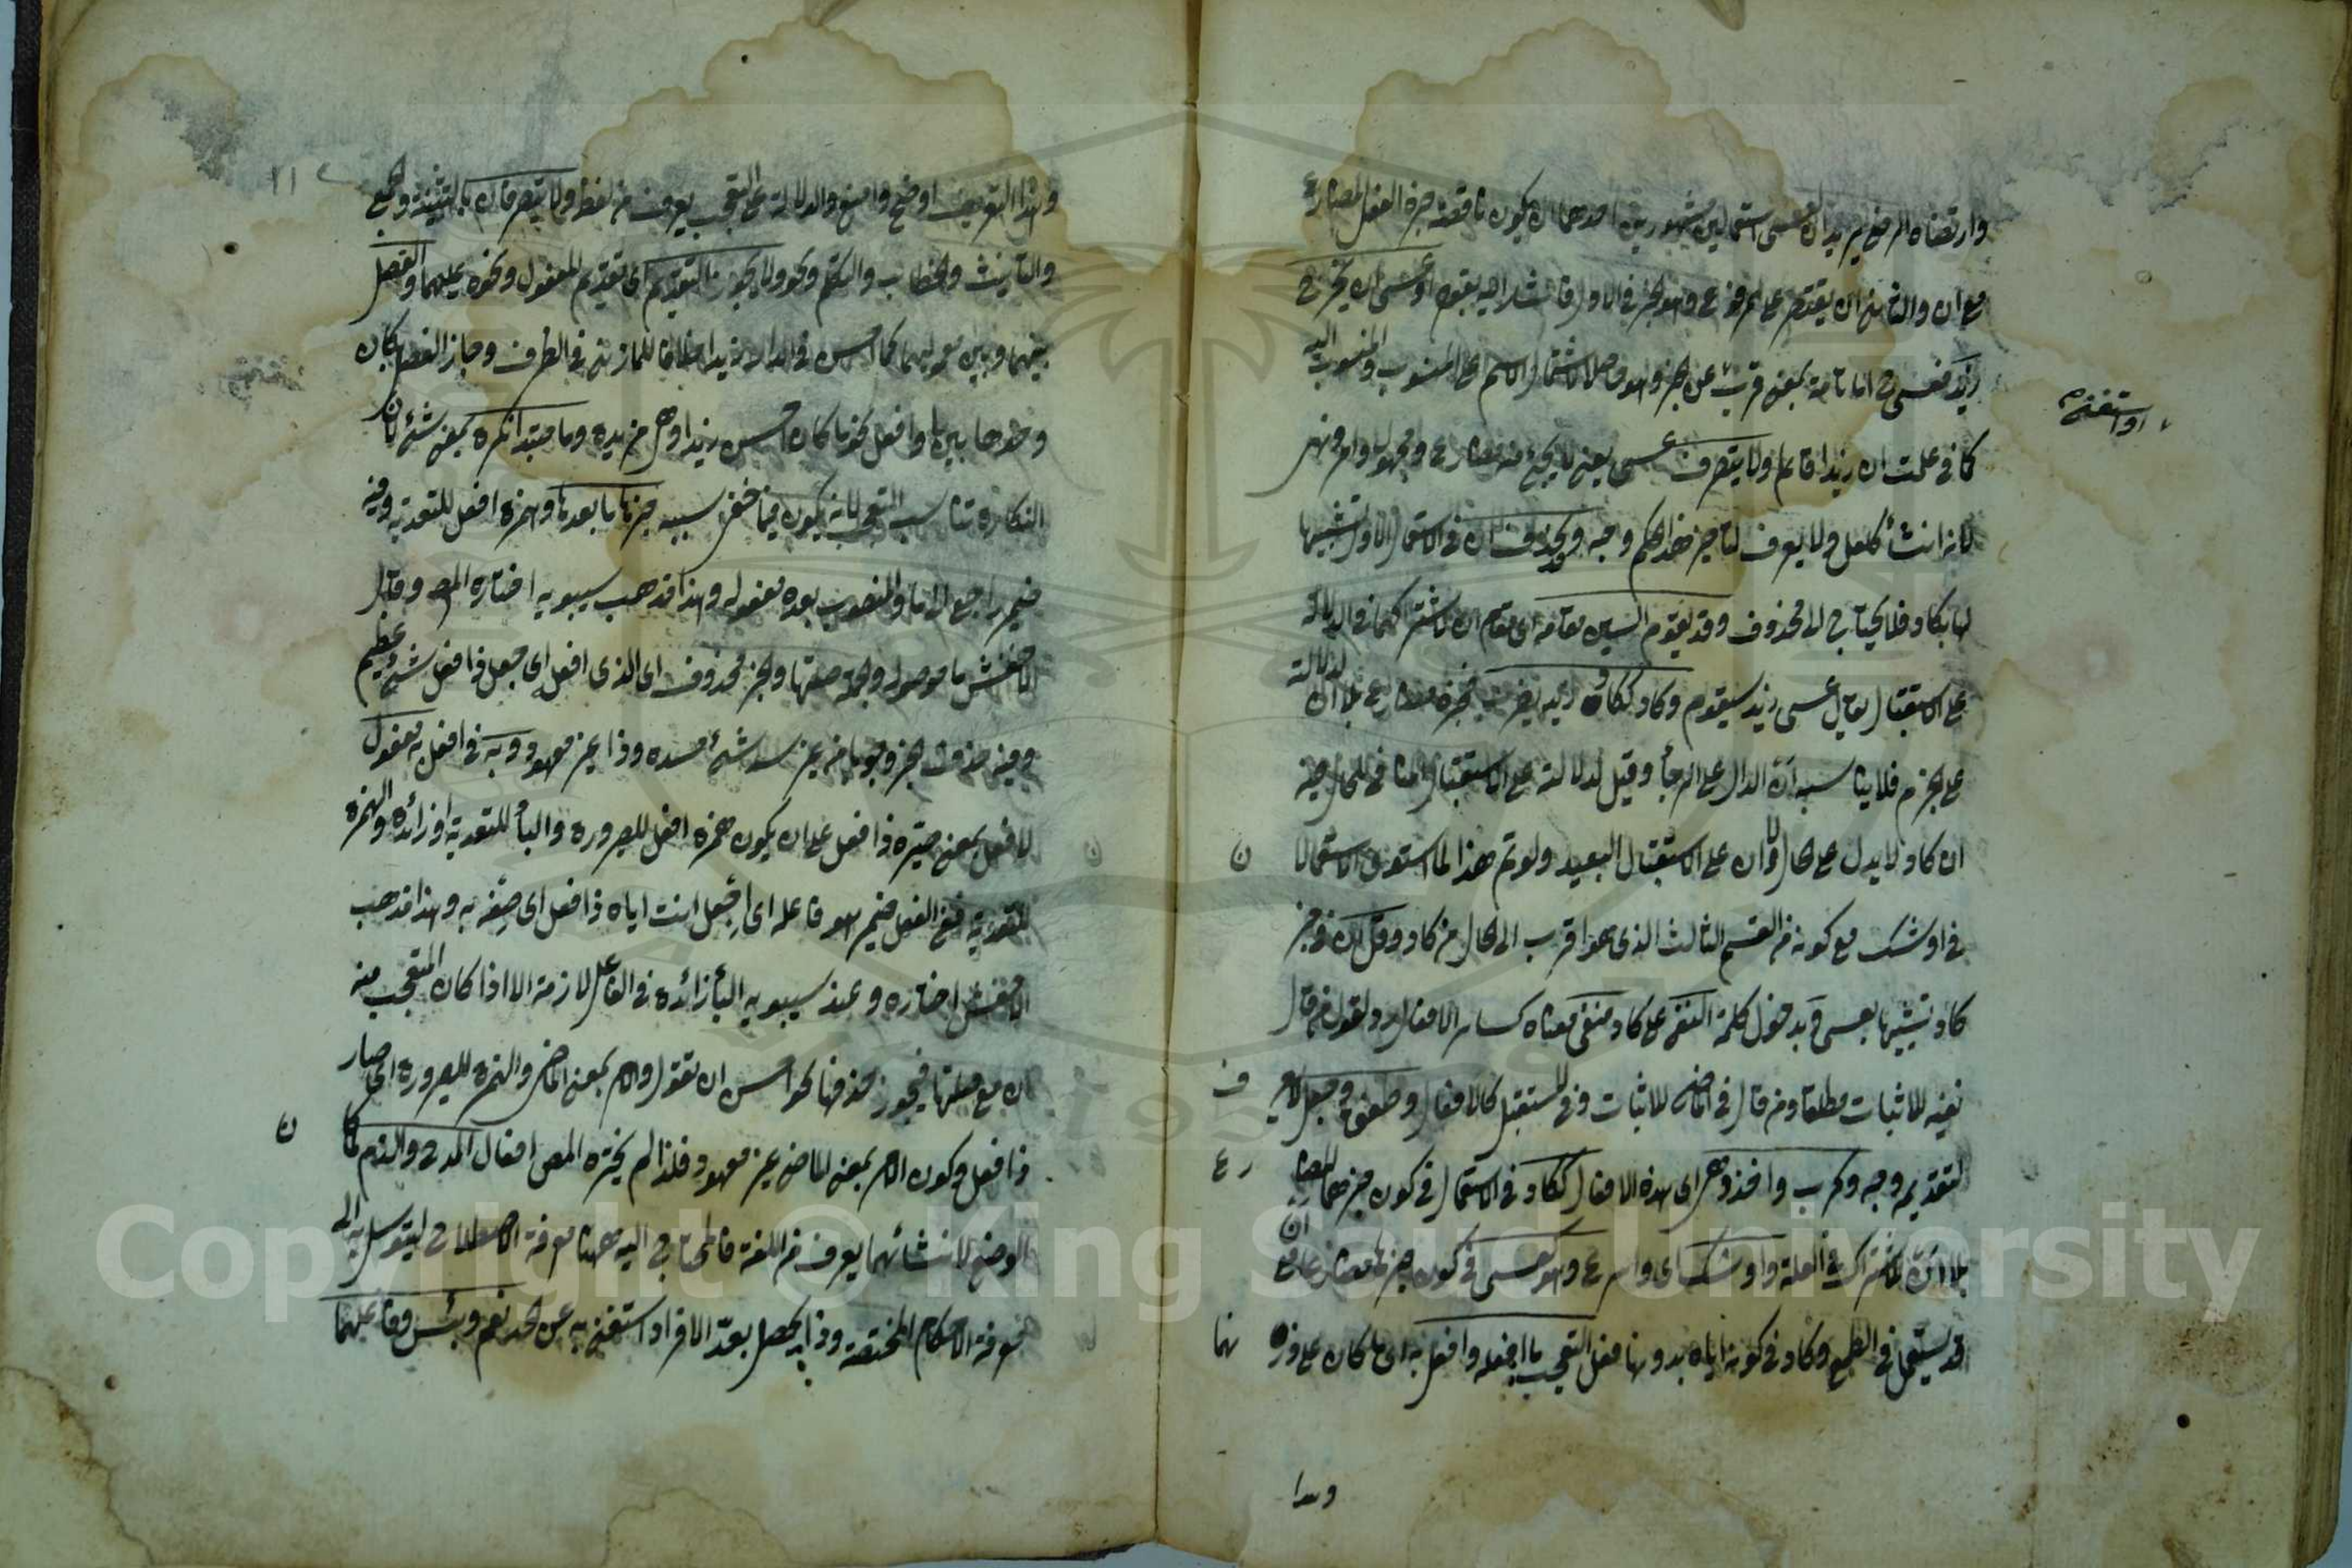 وارتضاه الرضي يريد ان لعسى استعمالين مشهورين احدهما ان يكون ناقصة خبره الفعل المضارع
مع ان والثاني ان يقتصر على المرفوع وهو الخبر في الاول فاشار اليه بقوله او عسى ان يخرج
زيد فعسى ح اما تامة بمعنى قرب عن الخبر وهو حاصل لاشتمال الاسم على المنسوب والمنسوب اليه
او استغنى
كما في علمت ان زيدا قائم ولا يتصرف عسى يعني لا يجيء منه مضارع ومجهول وامر ونهي
لانه انشاء كلعل ولا يعرف لتاخير هذا الحكم وجه ويحذف ان في الاستعمال الاول تشبيها
لها بكاد فلا يحتاج الى محذوف وقد يقوم السين مقامه اي مقام ان لاشتراكهما في الدلالة
على الاستقبال يقال عسى زيد سيقوم وكاد ككاد زيد يضرب فخبره مضارع بلا ان لدلالته
على الجزم فلا يناسبه ان الدال على الرجاء وقيل لدلالته على الاستقبال المنافي للحال وفيه
ان كاد لا يدل على الحال ولا ان على الاستقبال البعيد ولو تم هذا لما استوى الاستعمالان
في اوشك مع كونه من القسم الثالث الذي هو اقرب الى الحال من كاد وقل ان في خبر
كاد تشبيها بعسى وبدخول كلمة النفي على كاد منفي معناه كسائر الافعال ولقول من قال
نفيه للاثبات مطلقا ومن قال في الماضي للاثبات وفي المستقبل كالافعال وضعف وجعل لا غير
لتقديمه وجه وكرب واخذ وهي اي هذه الافعال ككاد في الاستعمال في كون خبرهما المضارع
بلا ان للاشتراك في العلة واوشك اي واسرع وهو كعسى في كون خبرها مضارعا مع ان
قد يستعمل في الطمع وكاد في كونه اياه بدونها فعل التعجب ما افعله وافعل به اي ما كان على وزنهما
وهذا
١١٢
وهذا التعريف اوضح وامنع والدلالة على التعجب يعرف من لفظ ولا يتصرفان بالتثنية والجمع
والتأنيث والخطاب والتكلم ونحو ولا يجوز التقديم اي تقديم المعمول ونحوه عليهما والفصل
بينهما وبين معموليهما كما احسن في الدار زيدا خلافا للمازني في الظرف وجاز الفصل بكان
وحدها بين ما وافعل نحو ما كان احسن زيدا وهي مزيدة وما مبتدأ نكرة بمعنى شيء لان
النكارة تناسب التعجب لانه يكون فيما خفي سببه خبرها ما بعدها وهمزة افعل للتعدية وفيه
ضمير راجع الى ما والمنصوب بعده مفعوله وهذا مذهب سيبويه اختاره المص وقال
الاخفش ما موصول والجملة صلتها والخبر محذوف اي الذي افعل اي جعل ذا فعل شيء عظيم
وفيه حذف الخبر وجوبا من غير سد شيء مسده وذا غير معهود وبه في افعل به مفعول
لافعل بمعنى صيره ذا فعل على ان يكون همزة افعل للصيرورة والباء للتعدية او زائدة والهمزة
للتعدية ففي الفعل ضمير هو فاعله اي اجعل انت اياه ذا فعل اي صفه به وهذا مذهب
الاخفش اختاره وعند سيبويه الباء زائدة في الفاعل لازمة الا اذا كان المتعجب منه
ان مع صلتها فيجوز حذفها نحو احسن ان تقول والامر بمعنى الماضي والهمزة للصيرورة اي صار
ذا فعل وكون الامر بمعنى الماضي غير معهود فلذا لم يختره المص افعال المدح والذم لما
الوضع لانشائهما يعرف من اللغة فالمحتاج اليه ههنا معرفة الاصطلاح ليتوسل به الى
معرفة الاحكام المختصة وذا يحصل بعد الافراد استغنى به عن الحد نعم وبئس وفاعلهما
Copyright © King Saud University